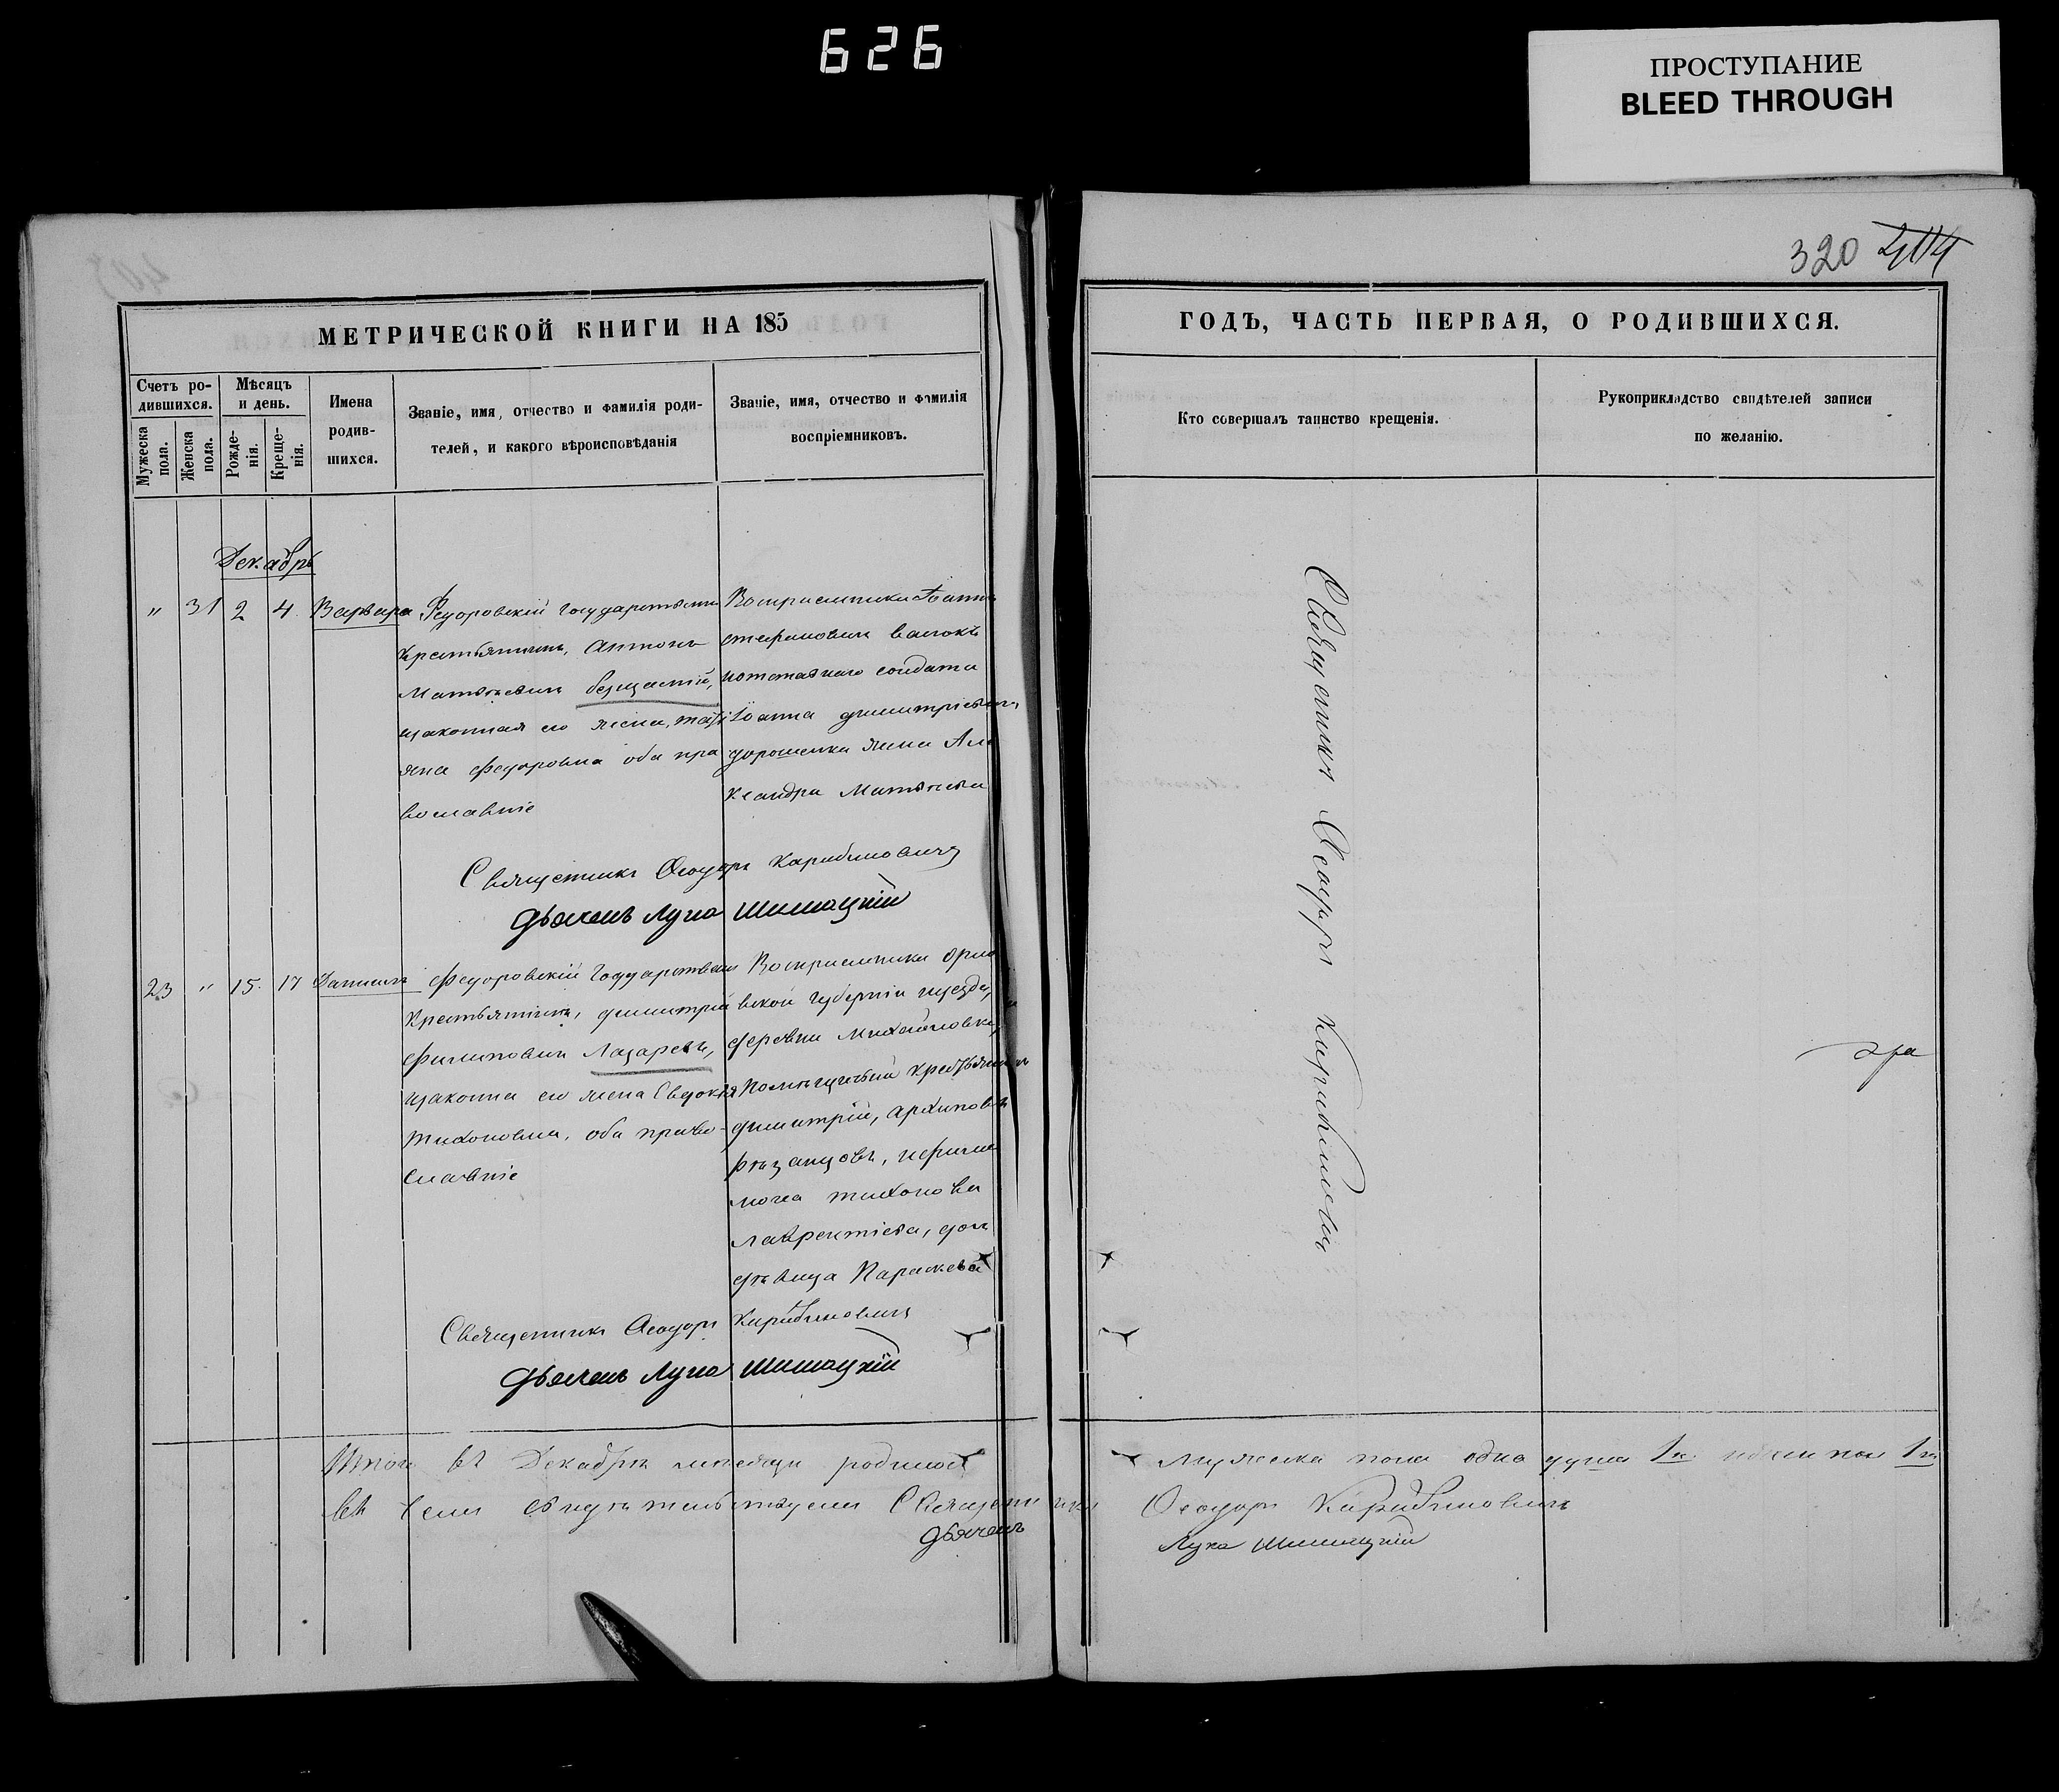 626
ПРОСТУПАНИЕ
BLEED THROUGH
320 404
МЕТРИЧЕСКОЙ КНИГИ НА 185
ГОДЪ, ЧАСТЬ ПЕРВАЯ, О РОДИВШИХСЯ.
Счетъ ро-
дившихся.
Мужеска
пола.
Женска
пола.
Мѣсяцъ
и день.
Рожде-
нія.
Креще-
нія.
Имена
родив-
шихся.
Званіе, имя, отчество и фамилія роди-
телей, и какого вѣроисповѣданія
Званіе, имя, отчество и фамилія
воспріемниковъ.
Кто совершалъ таинство крещенія.
Рукоприкладство свидѣтелей записи
по желанію.
Декабрь
" 31 2 4 Варвара
Федоровскій государствен
крестьянинъ, Антонъ
Матвѣевичъ
законная его жена, Тать
яна Федоровна оба пра
вославніе
Воспріемники Іоаннъ
Стефановичъ
солдата
Іоанна Димитріевич
Дорошенка жена Але
ксандра Матвѣева
Священникъ Ѳеодоръ
Дьячекъ Лука Шишацкій
23 " 15. 17 Даниилъ
Федоровскій государствен
крестьянинъ, Димитрій
Филиповичъ Лазаревъ,
законна его жена Евдокія
Тихоновна, оба право-
славніе
Воспріемники Орло
вской губерніи уѣзда,
деревни Михайловки,
помѣщичьий крестьянинъ
Димитрій, Архиповъ
Тихонова
Лаврентіева, дочь
дѣвица Параскева
Священникъ Ѳеодоръ
Дьячекъ Лука Шишацкій
Священникъ Ѳеодоръ
Итого въ Декабрѣ мѣсяцѣ родилось мужеска пола одна душа 1 пол 1
Въ семъ свидѣтельствуемъ Священникъ Ѳеодоръ
Дьячекъ Лука Шишацкій